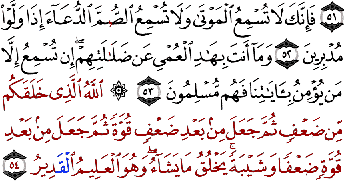 ٥١ فَإِنَّكَ لَا تُسْمِعُ الْمَوْتَىٰ وَلَا تُسْمِعُ الصُّمَّ الدُّعَاءَ إِذَا وَلَّوْا
مُدْبِرِينَ ٥٢ وَمَا أَنتَ بِهَادِ الْعُمْيِ عَن ضَلَالَتِهِمْ إِن تُسْمِعُ إِلَّا
مَن يُؤْمِنُ بِآيَاتِنَا فَهُم مُّسْلِمُونَ ٥٣ ۞ اللَّهُ الَّذِي خَلَقَكُم
مِّن ضَعْفٍ ثُمَّ جَعَلَ مِن بَعْدِ ضَعْفٍ قُوَّةً ثُمَّ جَعَلَ مِن بَعْدِ
قُوَّةٍ ضَعْفًا وَشَيْبَةً يَخْلُقُ مَا يَشَاءُ وَهُوَ الْعَلِيمُ الْقَدِيرُ ٥٤